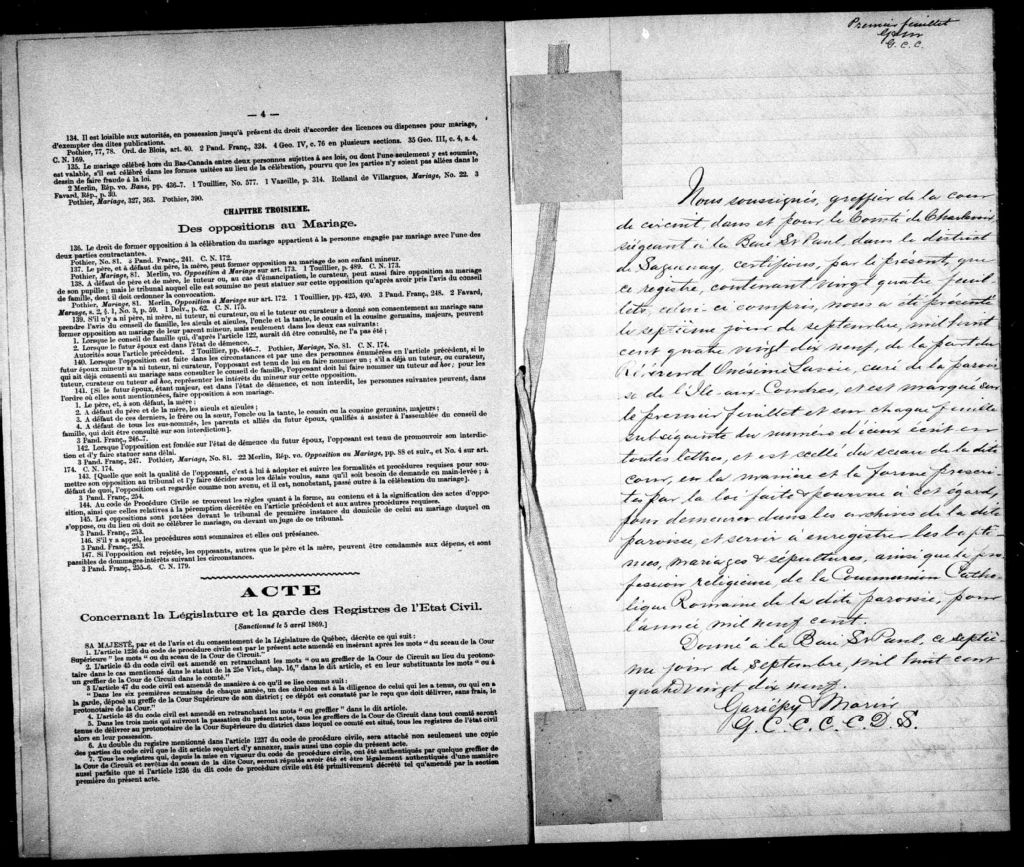 — 4 —
134. Il est loisible aux autorités, en possession jusqu'à présent du droit d'accorder des licences ou dispenses pour mariage,
d'exempter des dites publications.
Pothier, 77, 78. Ord. de Blois, art. 40. 2 Pand. Franç., 324. 4 Geo. IV, c. 76 en plusieurs sections. 35 Geo. III, c. 4, s. 4.
C. N. 169.
135. Le mariage célébré hors du Bas-Canada entre deux personnes sujettes à ses lois, ou dont l'une seulement y est soumise,
est valable, s'il est célébré dans les formes usitées au lieu de la célébration, pourvu que les parties n'y soient pas allées dans le
dessin de faire fraude à la loi.
2 Merlin, Rép. vo. Bans, pp. 436-7. 1 Touillier, No. 577. 1 Vazeille, p. 314. Rolland de Villargues, Mariage, No. 22. 3
Favard, Rép., p. 30.
Pothier, Mariage, 327, 363. Pothier, 390.
CHAPITRE TROISIEME.
Des oppositions au Mariage.
136. Le droit de former opposition à la célébration du mariage appartient à la personne engagée par mariage avec l'une des
deux parties contractantes.
Pothier, No. 81. 3 Pand. Franç., 241. C. N. 172.
137. Le père, et à défaut du père, la mère, peut former opposition au mariage de son enfant mineur.
Pothier, Mariage, 81. Merlin, vo. Opposition à Mariage sur art. 173. 1 Touillier, p. 489. C. N. 173.
138. A défaut de père et de mère, le tuteur ou, au cas d'émancipation, le curateur, peut aussi faire opposition au mariage
de son pupille; mais le tribunal auquel elle est soumise ne peut statuer sur cette opposition qu'après avoir pris l'avis du conseil
de famille, dont il doit ordonner la convocation.
Pothier, Mariage, 81. Merlin, Opposition à Mariage sur art. 172. 1 Touillier, pp. 425, 490. 3 Pand. Franç., 248. 2 Favard,
Mariage, s. 2, § 1, No. 3, p. 59. 1 Delv., p. 62. C. N. 175.
139. S'il n'y a ni père, ni mère, ni tuteur, ni curateur, ou si le tuteur ou curateur a donné son consentement au mariage sans
prendre l'avis du conseil de famille, les aïeuls et aïeules, l'oncle et la tante, le cousin et la cousine germains, majeurs, peuvent
former opposition au mariage de leur parent mineur, mais seulement dans les deux cas suivants:
1. Lorsque le conseil de famille qui, d'après l'article 122, aurait dû être consulté, ne l'a pas été;
2. Lorsque le futur époux est dans l'état de démence.
Autorités sous l'article précédent. 2 Touillier, pp. 446-7. Pothier, Mariage, No. 81. C. N. 174.
140. Lorsque l'opposition est faite dans les circonstances et par une des personnes énumérées en l'article précédent, si le
futur époux mineur n'a ni tuteur, ni curateur, l'opposant est tenu de lui en faire nommer un; s'il a déjà un tuteur, ou curateur,
qui ait déjà consenti au mariage sans consulter le conseil de famille, l'opposant doit lui faire nommer un tuteur ad hoc; pour les
tuteur, curateur ou tuteur ad hoc, représenter les intérêts du mineur sur cette opposition.
141. [Si le futur époux, étant majeur, est dans l'état de démence, et non interdit, les personnes suivantes peuvent, dans
l'ordre où elles sont mentionnées, faire opposition à son mariage.
1. Le père, et, à son défaut, la mère;
2. A défaut du père et de la mère, les aïeuls et aïeules;
3. A défaut de ces derniers, le frère ou la sœur, l'oncle ou la tante, le cousin ou la cousine germains, majeurs;
4. A défaut de tous les sus-nommés, les parents et alliés du futur époux, qualifiés à assister à l'assemblée du conseil de
famille, qui doit être consulté sur son interdiction].
3 Pand. Franç., 246-7.
142. Lorsque l'opposition est fondée sur l'état de démence du futur époux, l'opposant est tenu de promouvoir son interdic-
tion et d'y faire statuer sans délai.
3 Pand. Franç., 247. Pothier, Mariage, No. 81. 22 Merlin, Rép. vo. Opposition au Mariage, pp. 88 et suiv., et No. 4 sur art.
174. C. N. 174.
143. [Quelle que soit la qualité de l'opposant, c'est à lui à adopter et suivre les formalités et procédures requises pour sou-
mettre son opposition au tribunal et l'y faire décider sous les délais voulus, sans qu'il soit besoin de demande en main-levée; à
défaut de quoi, l'opposition est regardée comme non avenu, et il est, nonobstant, passé outre à la célébration du mariage].
3 Pand. Franç., 254.
144. Au code de Procédure Civile se trouvent les règles quant à la forme, au contenu et à la signification des actes d'oppo-
sition, ainsi que celles relatives à la péremption décrétée en l'article précédent et aux autres procédures requises.
145. Les oppositions sont portées devant le tribunal de première instance du domicile de celui au mariage duquel on
s'oppose, ou du lieu où doit se célébrer le mariage, ou devant un juge de ce tribunal.
3 Pand. Franç., 253.
146. S'il y a appel, les procédures sont sommaires et elles ont préséance.
3 Pand. Franç., 253.
147. Si l'opposition est rejetée, les opposants, autres que le père et la mère, peuvent être condamnés aux dépens, et sont
passibles de dommages-intérêts suivant les circonstances.
3 Pand. Franç., 255-6. C. N. 179.
ACTE
Concernant la Législature et la garde des Registres de l'Etat Civil.
[Sanctionné le 5 avril 1869.]
SA MAJESTÉ, par et de l'avis et du consentement de la Législature de Québec, décrète ce qui suit:
1. L'article 1236 du code de procédure civile est par le présent acte amendé en insérant après les mots "du sceau de la Cour
Supérieure" les mots "ou du sceau de la Cour de Circuit."
2. L'article 45 du code civil est amendé en retranchant les mots "ou au greffier de la Cour de Circuit au lieu du protono-
taire dans le cas mentionné dans le statut de la 25e Vict., chap. 16," dans le dit article, et en leur substituant les mots "ou à
un greffier de la Cour de Circuit dans le comté."
3 L'article 47 du code civil est amendé de manière à ce qu'il se lise comme suit:
"Dans les six premières semaines de chaque année, un des doubles est à la diligence de celui qui les a tenus, ou qui en a
la garde, déposé au greffe de la Cour Supérieure de son district; ce dépôt est constaté par le reçu que doit délivrer, sans frais, le
protonotaire de la Cour."
4. L'article 48 du code civil est amendé en retranchant les mots "ou greffier" dans le dit article.
5. Dans les trois mois qui suivront la passation du présent acte, tous les greffiers de la Cour de Circuit dans tout comté seront
tenus de délivrer au protonotaire de la Cour Supérieure du district dans lequel ce comté est situé, tous les registres de l'état civil
alors en leur possession.
6. Au double du registre mentionné dans l'article 1237 du code de procédure civile, sera attaché non seulement une copie
des parties du code civil que le dit article requiert d'y annexer, mais aussi une copie du présent acte.
7. Tous les registres qui, depuis la mise en vigueur du code de procédure civile, ont été authentiqués par quelque greffier de
la Cour de Circuit et revêtus du sceau de la dite Cour, seront réputés avoir été et être légalement authentiqués d'une manière
aussi parfaite que si l'article 1236 du dit code de procédure civile eût été primitivement décrété tel qu'amendé par la section
première du présent acte.
Premier feuillet
G. C. C.
Nous soussignés, greffier de la cour
de circuit, dans et pour le Comté de Charlevoix
siégeant à la Baie St Paul, dans le district
de Saguenay, certifions, par le présent, que
ce registre, contenant vingt quatre feuil-
lets, celui-ci compris, nous a été présenté
le septième jour de septembre, mil huit
cent quatre vingt dix neuf, de la part du
Révérend Onésime Lavoie, curé de la parois-
se de l'Ile-aux-Coudres, et est marqué sur
le premier feuillet et sur chaque feuillet
subséquents du numéro d'iceux écrit en
toutes lettres, et est scellé du sceau de la dite
cour, en la manière et la forme prescri-
tes par la loi faite & pourvue à cet égard,
pour demeurer dans les archives de la dite
paroisse, et servir à enregistrer les baptê-
mes, mariages & sépultures, ainsi que la pro
fession religieuse de la Communion Catho-
lique Romaine de la dite paroisse, pour
l'année mil neuf cent.
Donné à la Baie St Paul, ce septiè-
me jour de septembre, mil huit cent
quatre vingt dix neuf.
Gariépy & Morin
G. C. C. C. C. D. S.